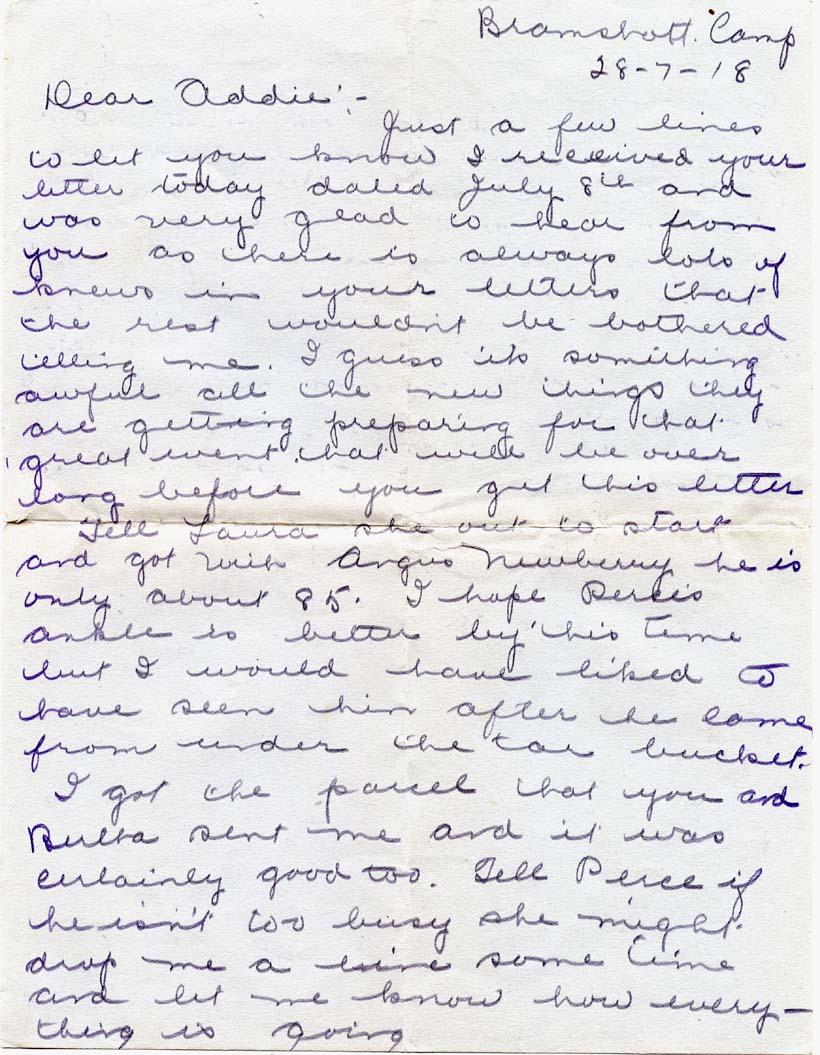 Bramshott. Camp
28-7-18
Dear Addie:-
Just a few lines
to let you know I received your
letter today dated July 8th and
was very glad to hear from
you as there is always lots of
knews in your letters that
the rest wouldn't be bothered
telling me. I guess its something
awful all the new things they
are getting preparing for that
great event that will be over
long before you get this letter
Tell Laura she out to start
and got with Angus Newberry he is
only about 85. I hope Percis
ankle is better by this time
but I would have liked to
have seen him after he came
from under the tar bucket.
I got the parcel that you and
Bertha sent me and it was
certainly good too. Tell Perce if
he isn't too busy she might
drop me a line some time
and let me know how every-
thing is going